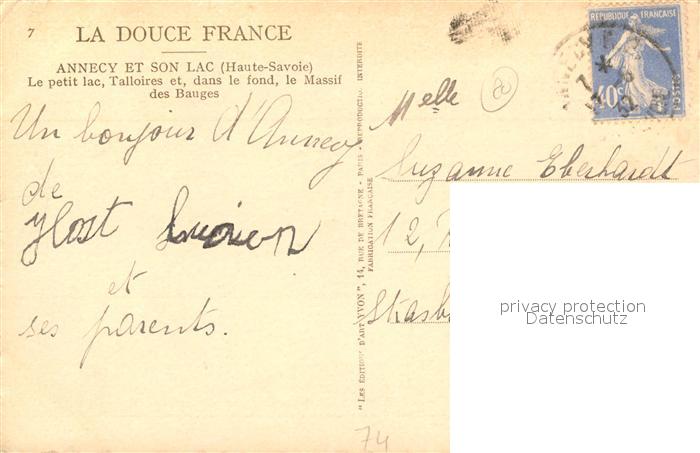 7 LA DOUCE FRANCE
ANNECY ET SON LAC (Haute-Savoie)
Le petit lac, Talloires et, dans le fond, le Massif
des Bauges
Un bonjour d'Annecy
de
Host Lucien
et
ses parents.
"LES ÉDITIONS D'ART YVON", 14, RUE DE BRETAGNE - PARIS - REPRODUCTION INTERDITE
FABRICATION FRANÇAISE
REPUBLIQUE FRANÇAISE
40c
POSTES
Melle
20
Suzanne Eberhardt
12,
Stasb
privacy protection
Datenschutz
74